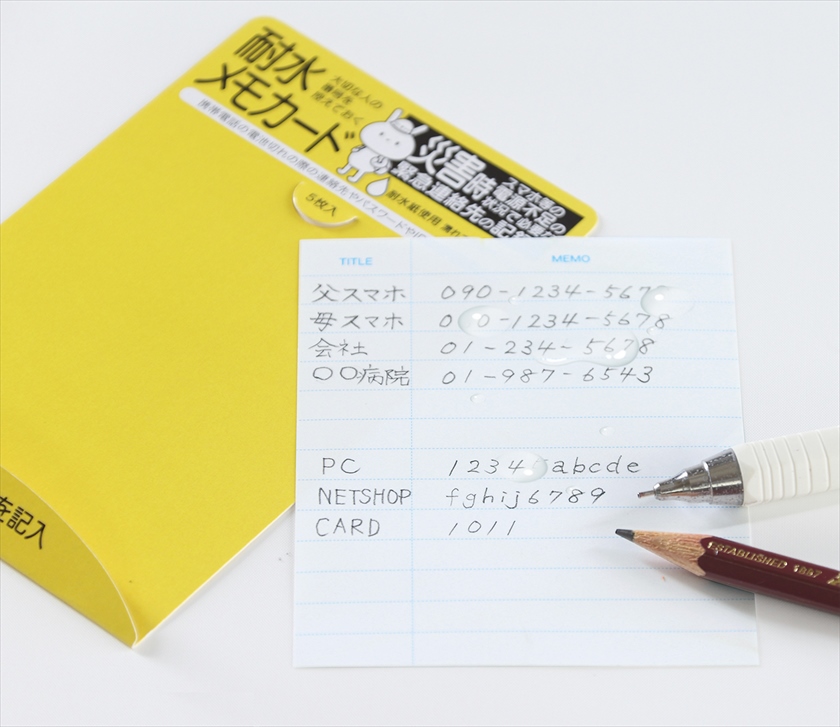 耐水
メモカード
大切な人の
連絡を
控えておく
災害時
緊急連絡先の
スマホ等の
電源不足の
状況で必要な
携帯電話の電池切れの際の連絡先やパスワードや
耐水紙使用
5枚入
TITLE MEMO
父スマホ 090-1234-567
母スマホ 0 0-1234-5678
会社 01-234-5678
〇〇病院 01-987-6543
PC 1234 abcde
NETSHOP fghij6789
CARD 1011
を記入
ESTABLISHED 1887